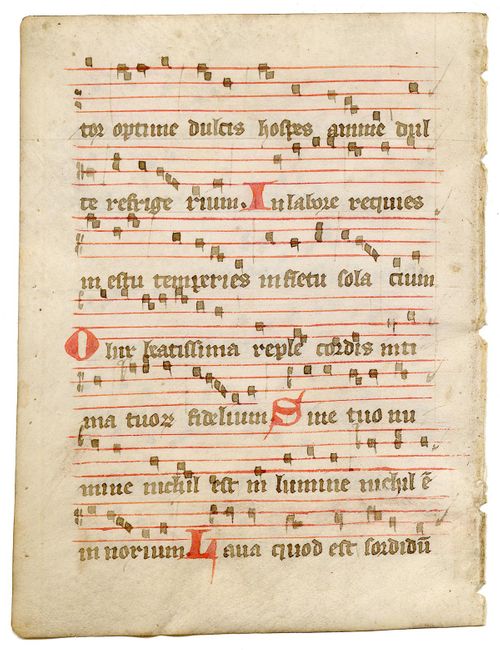 tor optime dulcis hospes anime dul
te refrige rium. In labore requies
in estu temperies in fletu sola cium
O lux beatissima reple cordis inti
ma tuoꝝ fidelium Sine tuo nu
mine nichil est in lumine nichil ē
in noxium Laua quod est sordidū